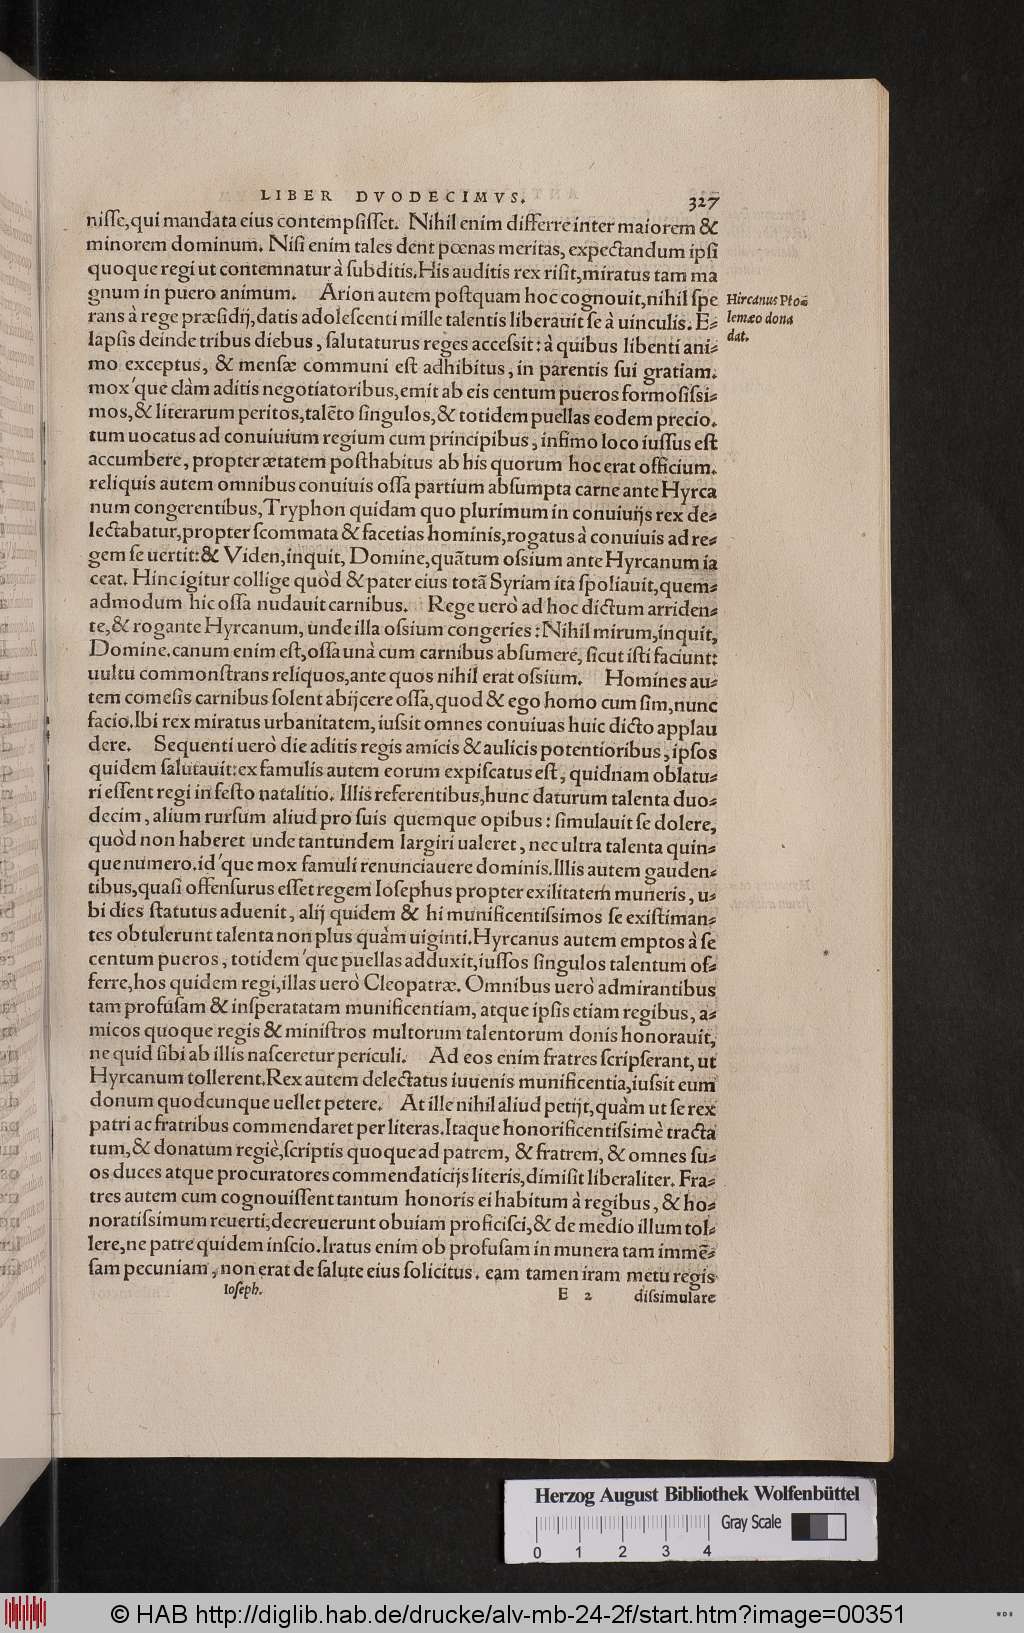 LIBER DVODECIMVS. 327
niſſe, qui mandata eius contempſiſſet. Nihil enim differre inter maiorem &
minorem dominum. Niſi enim tales dent pœnas meritas, expectandum ipſi
quoque regi ut contemnatur à ſubditis. His auditis rex riſit, miratus tam ma
gnum in puero animum. Arion autem poſtquam hoc cognouit, nihil ſpe
Hircanus Ptoa
rans à rege præſidij, datis adoleſcenti mille talentis liberauit ſe à uinculis. E⸗
lemæo dona
lapſis deinde tribus diebus, ſalutaturus reges acceſsit: à quibus libenti ani⸗
dat.
mo exceptus, & menſæ communi eſt adhibitus, in parentis ſui gratiam.
mox'que clàm aditis negotiatoribus, emit ab eis centum pueros formoſiſsi⸗
mos, & literarum peritos, talẽto ſingulos, & totidem puellas eodem precio.
tum uocatus ad conuiuium regium cum principibus, infimo loco iuſſus eſt
accumbere, propter ætatem poſthabitus ab his quorum hoc erat officium.
reliquis autem omnibus conuiuis oſſa partium abſumpta carne ante Hyrca
num congerentibus, Tryphon quidam quo plurimum in conuiuijs rex de⸗
lectabatur, propter ſcommata & facetias hominis, rogatus à conuiuis ad re⸗
gem ſe uertit: & Viden, inquit, Domine, quãtum oſsium ante Hyrcanum ia
ceat. Hinc igitur collige quòd & pater eius totã Syriam ita ſpoliauit, quem⸗
admodum hic oſſa nudauit carnibus. Rege uerò ad hoc dictum arriden⸗
te, & rogante Hyrcanum, unde illa oſsium congeries: Nihil mirum, inquit,
Domine. canum enim eſt, oſſa unà cum carnibus abſumere, ſicut iſti faciunt:
uultu commonſtrans reliquos, ante quos nihil erat oſsium. Homines au⸗
tem comeſis carnibus ſolent abijcere oſſa, quod & ego homo cum ſim, nunc
facio. Ibi rex miratus urbanitatem, iuſsit omnes conuiuas huic dicto applau
dere. Sequenti uerò die aditis regis amicis & aulicis potentioribus, ipſos
quidem ſalutauit: ex famulis autem eorum expiſcatus eſt, quidnam oblatu⸗
ri eſſent regi in feſto natalitio. Illis referentibus, hunc daturum talenta duo⸗
decim, alium rurſum aliud pro ſuis quemque opibus: ſimulauit ſe dolere,
quòd non haberet unde tantundem largiri ualeret, nec ultra talenta quin⸗
que numero. id'que mox famuli renunciauere dominis. Illis autem gauden⸗
tibus, quaſi offenſurus eſſet regem Ioſephus propter exilitatem muneris, u⸗
bi dies ſtatutus aduenit, alij quidem & hi munificentiſsimos ſe exiſtiman⸗
tes obtulerunt talenta non plus quàm uiginti. Hyrcanus autem emptos à ſe
centum pueros, totidem'que puellas adduxit, iuſſos ſingulos talentum of⸗
ferre, hos quidem regi, illas uerò Cleopatræ. Omnibus uerò admirantibus
tam profuſam & inſperatatam munificentiam, atque ipſis etiam regibus, a⸗
micos quoque regis & miniſtros multorum talentorum donis honorauit,
ne quid ſibi ab illis naſceretur periculi. Ad eos enim fratres ſcripſerant, ut
Hyrcanum tollerent. Rex autem delectatus iuuenis munificentia, iuſsit eum
donum quodcunque uellet petere. At ille nihil aliud petijt, quàm ut ſe rex
patri ac fratribus commendaret per literas. Itaque honorificentiſsimè tracta
tum, & donatum regiè, ſcriptis quoque ad patrem, & fratrem, & omnes ſu⸗
os duces atque procuratores commendaticijs literis, dimiſit liberaliter. Fra⸗
tres autem cum cognouiſſent tantum honoris ei habitum à regibus, & ho⸗
noratiſsimum reuerti, decreuerunt obuiam proficiſci, & de medio illum tol⸗
lere, ne patre quidem inſcio. Iratus enim ob profuſam in munera tam immẽ⸗
ſam pecuniam, non erat de ſalute eius ſolicitus. eam tamen iram metu regis
Ioſeph. E 2 diſsimulare
Herzog August Bibliothek Wolfenbüttel
Gray Scale
0 1 2 3 4
© HAB http://diglib.hab.de/drucke/alv-mb-24-2f/start.htm?image=00351